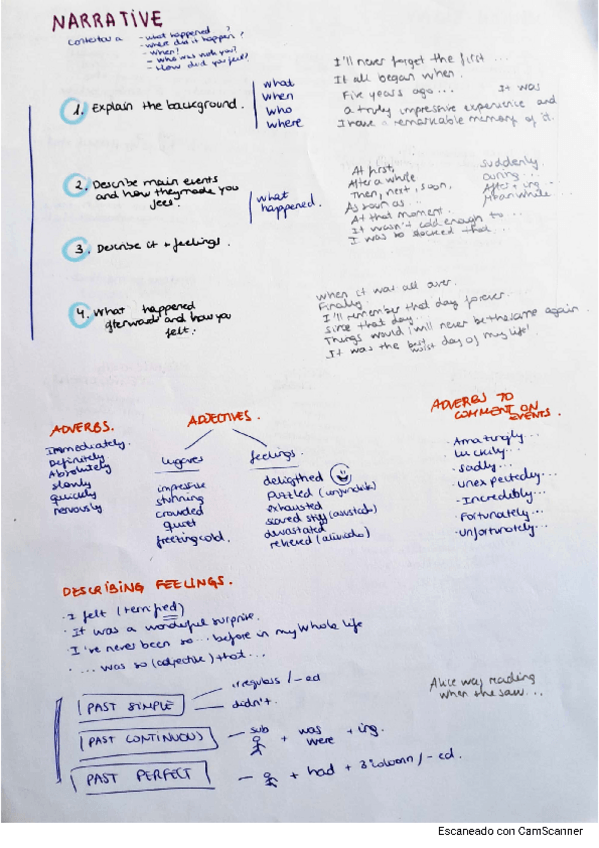 NARRATIVE
contesta a
- what happened?
- where did it happen?
- when?
- who was with you?
- How did you feel?
1. Explain the background.
what
when
who
where
I'll never forget the first ...
It all began when.
Five years ago... It was
a truly impressive experience and
I have a remarkable memory of it.
2. Describe main events
and how they made you
feel.
what
happened.
At first,
After a while
Then, next, soon,
As soon as ...
At that moment.
It wasn't cold enough to ...
I was so shocked that ...
Suddenly.
During...
After + ing ...
Meanwhile ...
3. Describe it + feelings.
4. What happened
afterwards and how you
felt.
when it was all over.
Finally
I'll remember that day forever.
Since that day...
Things would / will never be the same again.
It was the best
worst day of my life!
ADVERBS.
Immediately.
Definitely
Absolutely
slowly
quickly
nervously
ADJECTIVES.
lugares
impressive
stunning
crowded
quiet
freezing cold.
feelings.
deligthed
Puzzled (confundido)
exhausted
scared stiff (asustado)
devastated
relieved (aliviado)
ADVERBS TO
COMMENT ON
EVENTS.
- Amazingly...
- Luckily...
- Sadly...
- Unexpectedly...
- Incredibly...
- Fortunately...
- Unfortunately...
DESCRIBING FEELINGS.
· I felt (terrified)
· It was a wonderful surprise.
· I've never been so ... before in my whole life
· ... was so (adjective) that ...
PAST SIMPLE
irregulars / -ed
didn't.
Alice was reading
when she saw...
PAST CONTINUOUS
sub + was
were + ing.
PAST PERFECT
+ had + 3ª column / - ed.
Escaneado con CamScanner